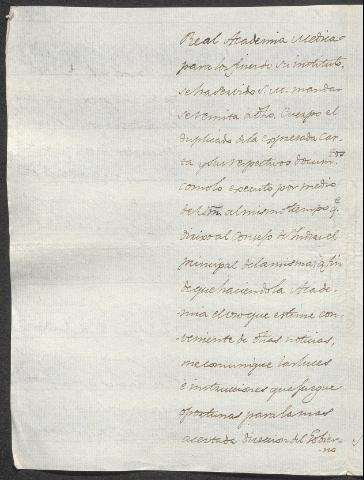 Real Academia Medica
para los fines de su instituto,
se ha servido S. M. mandar
se remita a dho. Cuerpo el
duplicado de la expresada Car-
ta y sus respectivos docum.tos
como lo executo por medio
de V.m. al mismo tiempo q.e
dirixo al Consejo de Indias el
principal de la misma; a fin
de que haciendo la Acade-
mia el uso que estime con-
veniente de otras noticias,
me comunique las luces
é instrucciones que juzgue
oportunas para la mas
acertada direccion del Gobier-
no